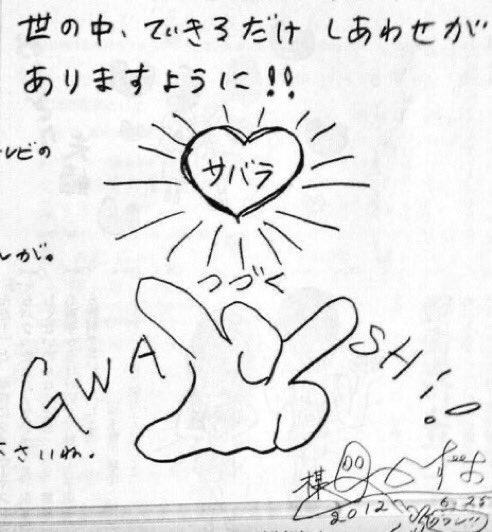 世の中、できるだけ しあわせが
ありますように!!
レビの
サバラ
しが。
つづく
GWASH!!
さいね。
楳
2012 6.25